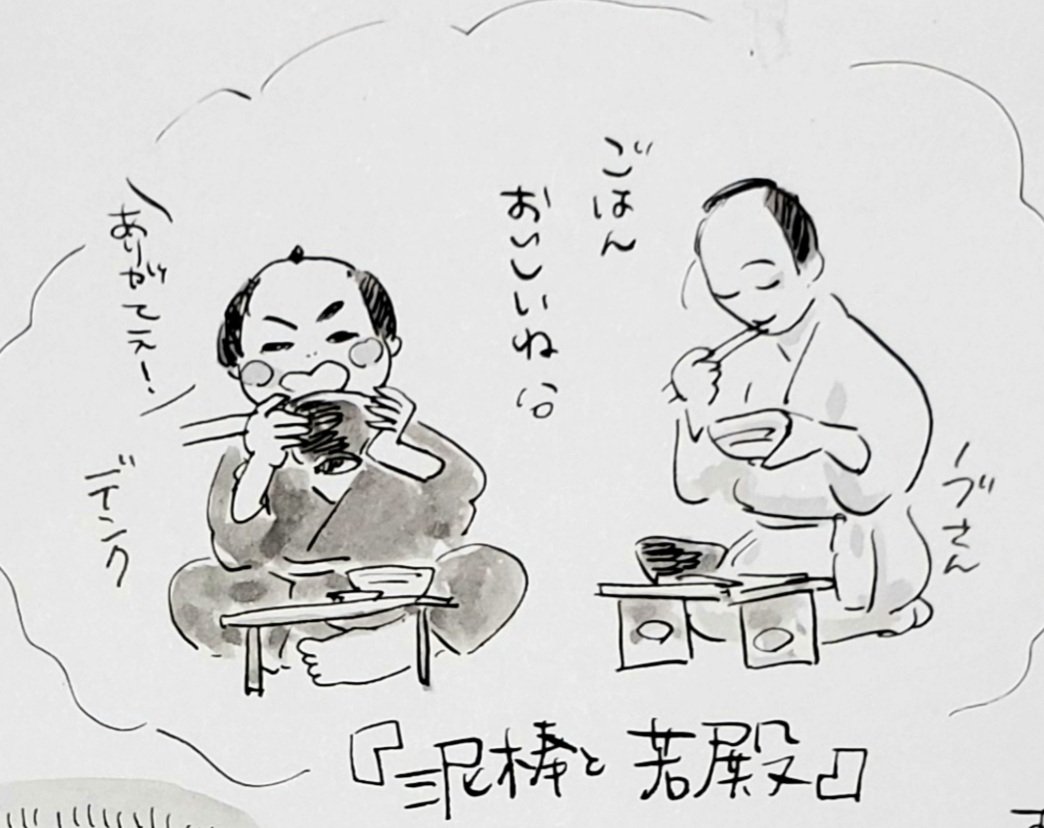 ノブさん
ごはん
おいしいね
ありがてえ！
デンク
『泥棒と若殿』